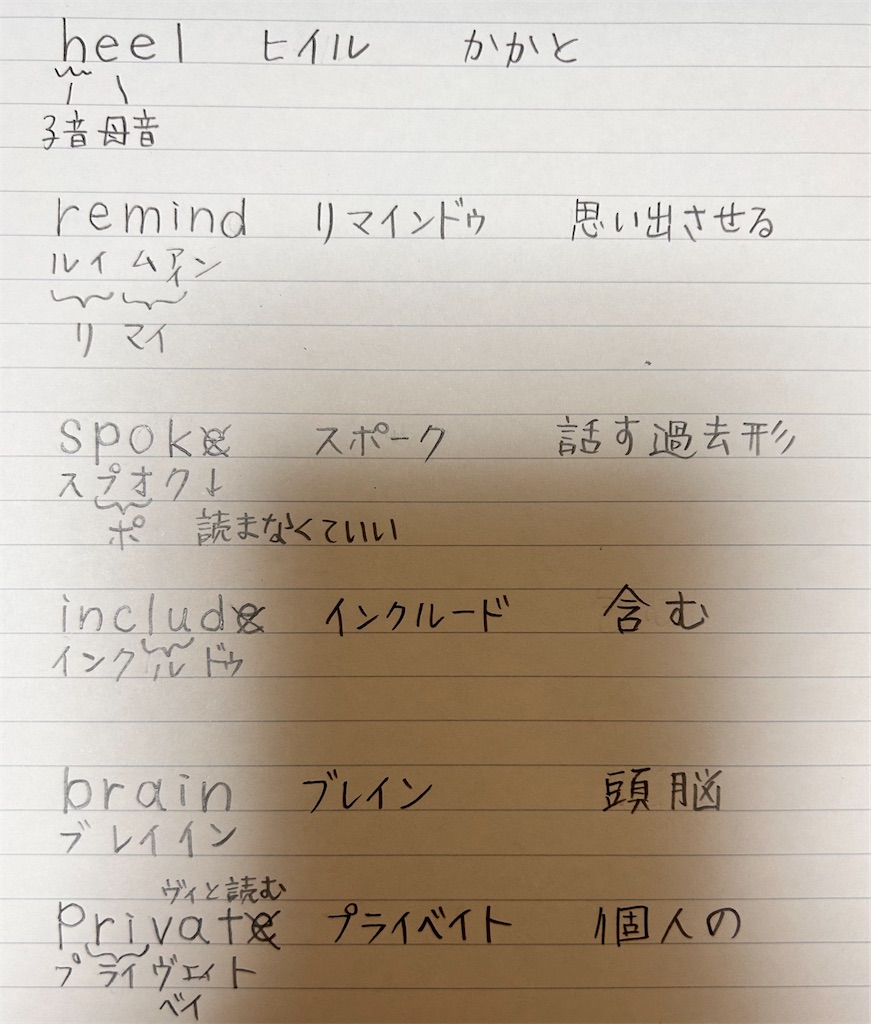 heel ヒイル かかと
子音 母音
remind リマインドゥ 思い出させる
ルイムアイン
リ マイ
spoke スポーク 話す過去形
スプオク↓
ポ 読まなくていい
include インクルード 含む
インクルドゥ
brain ブレイン 頭脳
ブレイイン
ヴィと読む
Private プライベイト 個人の
プライヴェイト
ベイ